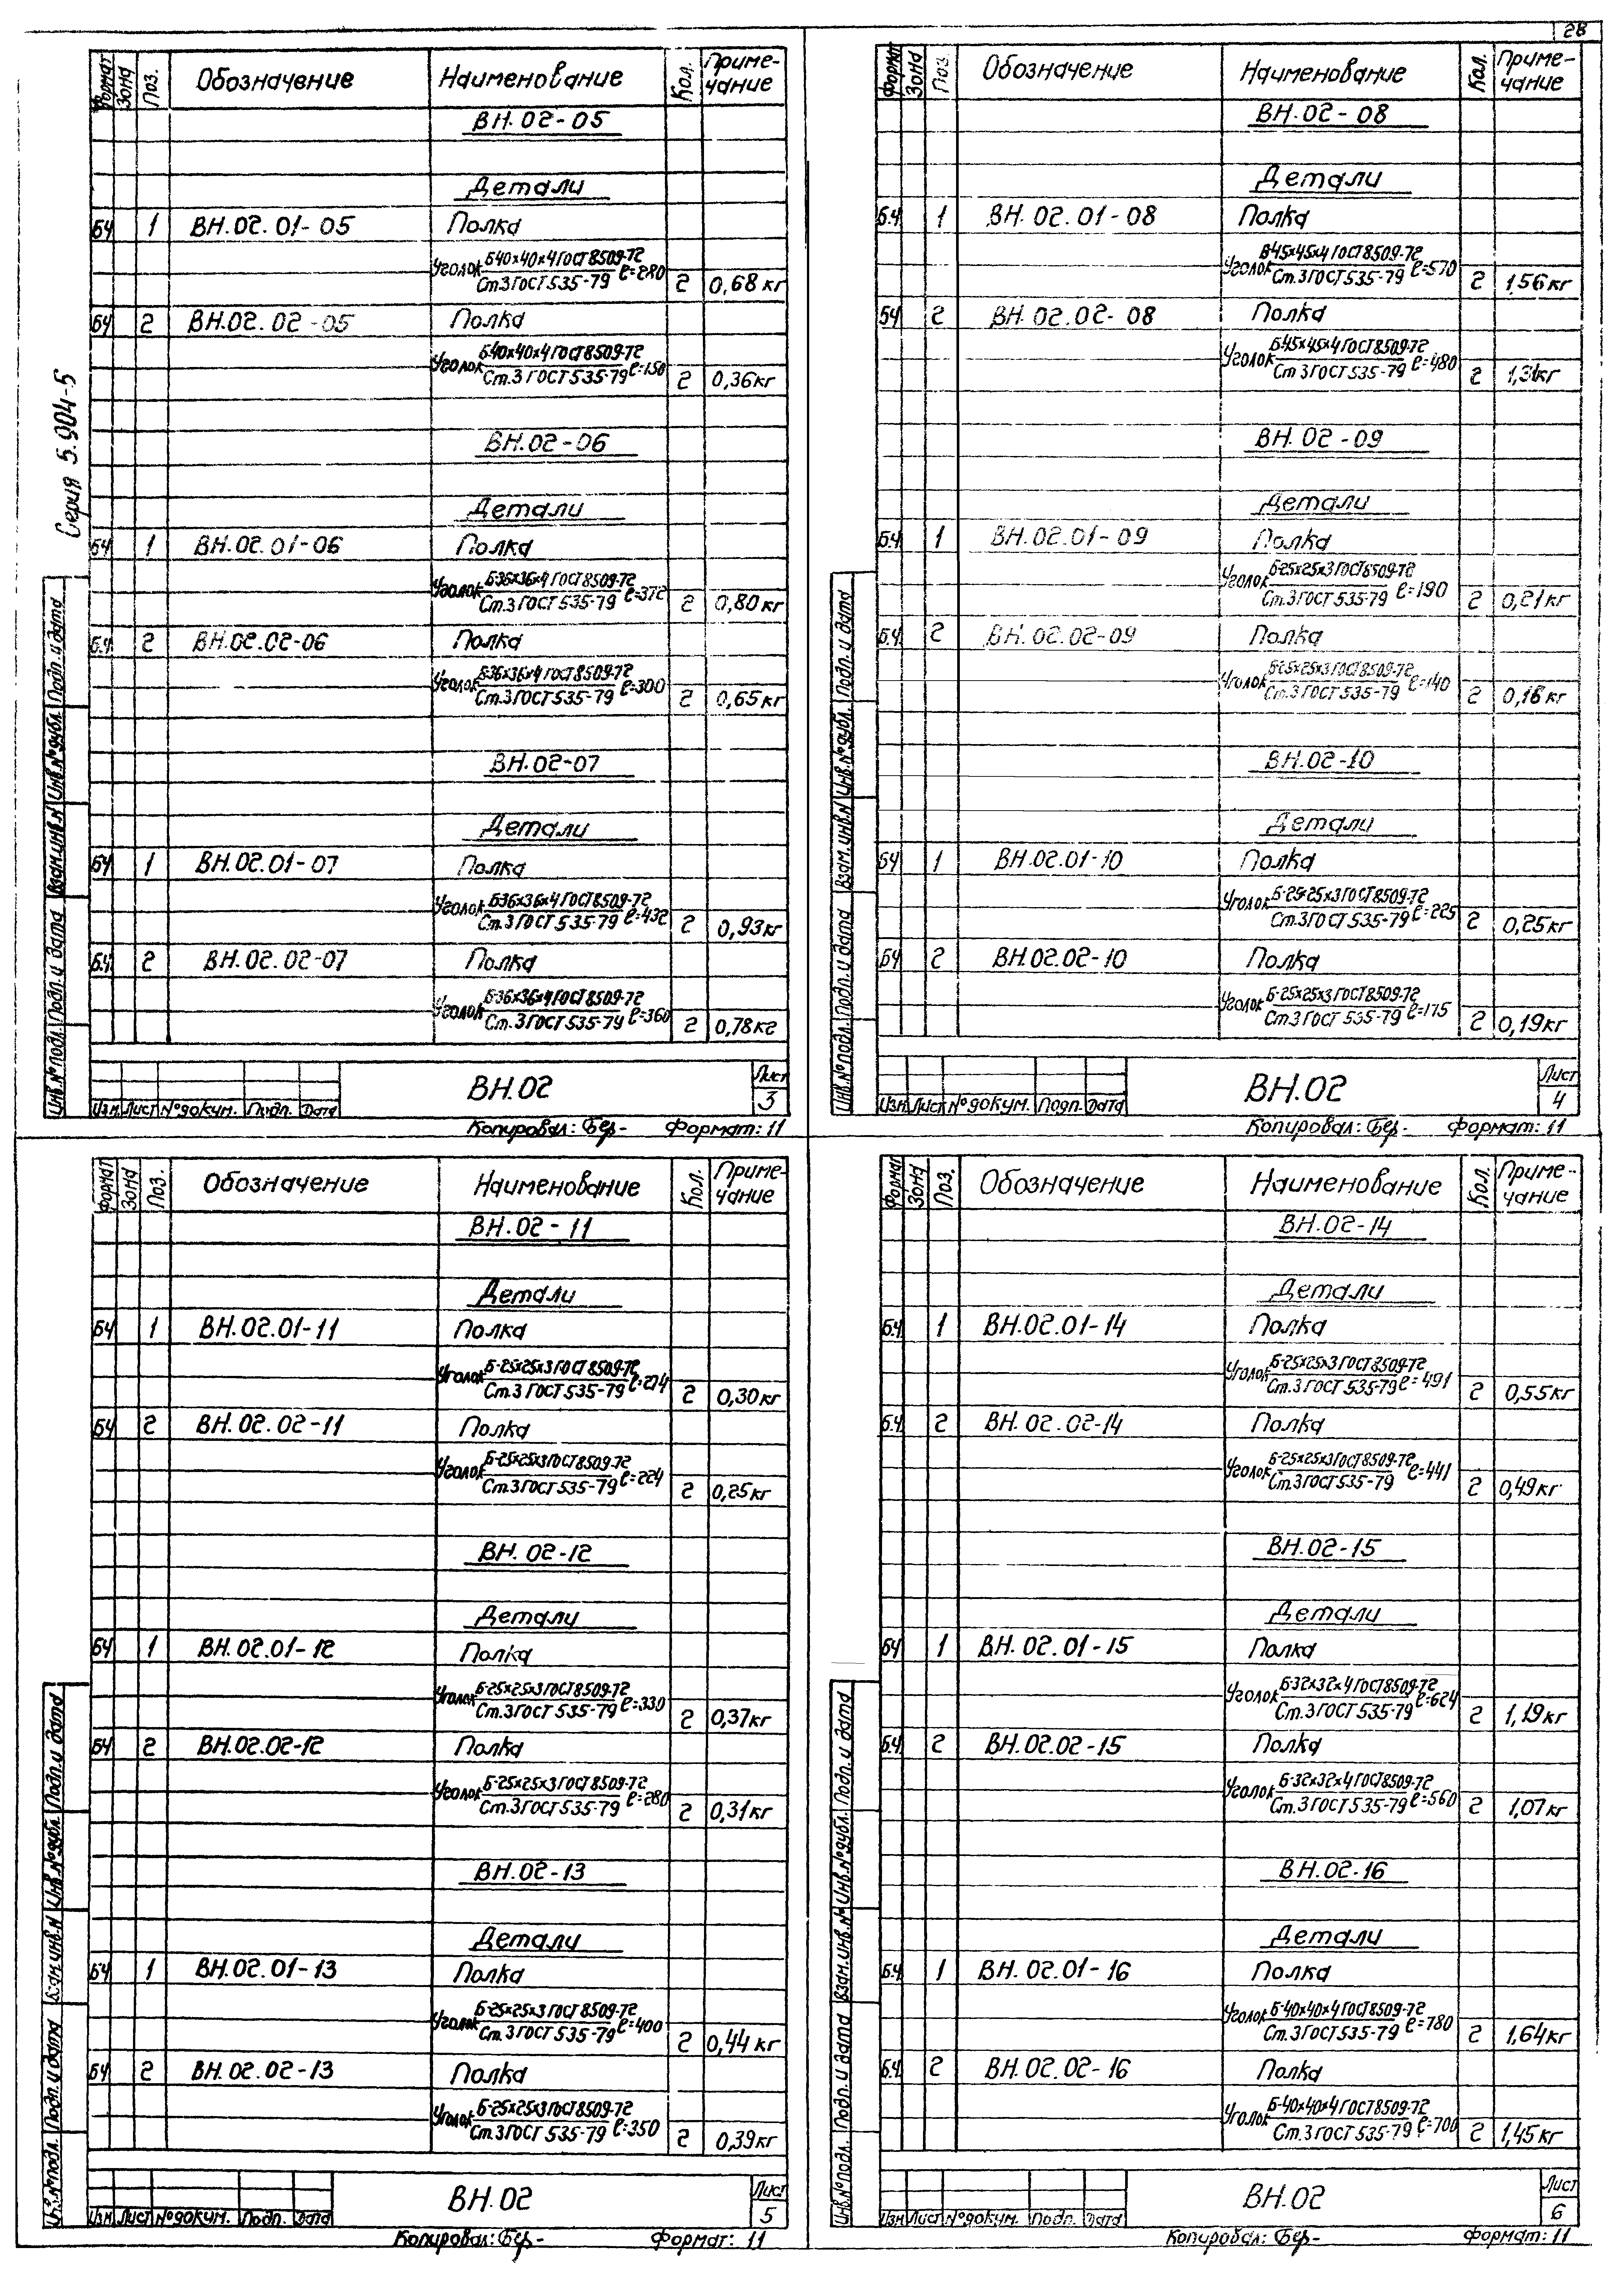 28
Серия 5.904-5
Формат Зона Поз. Обозначение Наименование Кол. Примечание
ВН.02-05
Детали
БЧ 1 ВН.02.01-05 Полка
Уголок Б40х40х4 ГОСТ 8509-72 / Ст.3 ГОСТ 535-79 ℓ=280 2 0,68 кг
БЧ 2 ВН.02.02-05 Полка
Уголок Б40х40х4 ГОСТ 8509-72 / Ст.3 ГОСТ 535-79 ℓ=150 2 0,36кг
ВН.02-06
Детали
БЧ 1 ВН.02.01-06 Полка
Уголок Б36х36х4 ГОСТ 8509-72 / Ст.3 ГОСТ 535-79 ℓ=372 2 0,80 кг
Б.Ч. 2 ВН.02.02-06 Полка
Уголок Б36х36х4 ГОСТ 8509-72 / Ст.3 ГОСТ 535-79 ℓ=300 2 0,65кг
ВН.02-07
Детали
БЧ 1 ВН.02.01-07 Полка
Уголок Б36х36х4 ГОСТ 8509-72 / Ст.3 ГОСТ 535-79 ℓ=432 2 0,93кг
Б.Ч. 2 ВН.02.02-07 Полка
Уголок Б36х36х4 ГОСТ 8509-72 / Ст.3 ГОСТ 535-79 ℓ=360 2 0,78кг
Инв.№подл. Подп. и дата Взам.инв.N Инв.№дубл. Подп. и дата
Изм. Лист №докум. Подп. Дата ВН.02 Лист 3
Копировал: Бер- Формат: 11
Формат Зона Поз. Обозначение Наименование Кол. Примечание
ВН.02-08
Детали
Б.Ч. 1 ВН.02.01-08 Полка
Уголок Б45х45х4 ГОСТ 8509-72 / Ст.3 ГОСТ 535-79 ℓ=570 2 1,56кг
БЧ 2 ВН.02.02-08 Полка
Уголок Б45х45х4 ГОСТ 8509-72 / Ст.3 ГОСТ 535-79 ℓ=480 2 1,31кг
ВН.02-09
Детали
Б.Ч. 1 ВН.02.01-09 Полка
Уголок Б-25х25х3 ГОСТ 8509-72 / Ст.3 ГОСТ 535-79 ℓ=190 2 0,21кг
Б.Ч. 2 ВН.02.02-09 Полка
Уголок Б-25х25х3 ГОСТ 8509-72 / Ст.3 ГОСТ 535-79 ℓ=140 2 0,16 кг
ВН.02-10
Детали
БЧ 1 ВН.02.01-10 Полка
Уголок Б-25х25х3 ГОСТ 8509-72 / Ст.3 ГОСТ 535-79 ℓ=225 2 0,25кг
БЧ 2 ВН.02.02-10 Полка
Уголок Б-25х25х3 ГОСТ 8509-72 / Ст.3 ГОСТ 535-79 ℓ=175 2 0,19кг
Инв.№подл. Подп. и дата Взам.инв.N Инв.№дубл. Подп. и дата
Изм. Лист №докум. Подп. Дата ВН.02 Лист 4
Копировал: Бер- Формат: 11
Формат Зона Поз. Обозначение Наименование Кол. Примечание
ВН.02-11
Детали
БЧ 1 ВН.02.01-11 Полка
Уголок Б-25х25х3 ГОСТ 8509-72 / Ст.3 ГОСТ 535-79 ℓ=274 2 0,30кг
БЧ 2 ВН.02.02-11 Полка
Уголок Б-25х25х3 ГОСТ 8509-72 / Ст.3 ГОСТ 535-79 ℓ=224 2 0,25кг
ВН.02-12
Детали
БЧ 1 ВН.02.01-12 Полка
Уголок Б-25х25х3 ГОСТ 8509-72 / Ст.3 ГОСТ 535-79 ℓ=330 2 0,37кг
БЧ 2 ВН.02.02-12 Полка
Уголок Б-25х25х3 ГОСТ 8509-72 / Ст.3 ГОСТ 535-79 ℓ=280 2 0,31кг
ВН.02-13
Детали
БЧ 1 ВН.02.01-13 Полка
Уголок Б-25х25х3 ГОСТ 8509-72 / Ст.3 ГОСТ 535-79 ℓ=400 2 0,44 кг
БЧ 2 ВН.02.02-13 Полка
Уголок Б-25х25х3 ГОСТ 8509-72 / Ст.3 ГОСТ 535-79 ℓ=350 2 0,39кг
Инв.№подл. Подп. и дата Взам.инв.N Инв.№дубл. Подп. и дата
Изм. Лист №докум. Подп. Дата ВН.02 Лист 5
Копировал: Бер- Формат: 11
Формат Зона Поз. Обозначение Наименование Кол. Примечание
ВН.02-14
Детали
Б.Ч. 1 ВН.02.01-14 Полка
Уголок Б-25х25х3 ГОСТ 8509-72 / Ст.3 ГОСТ 535-79 ℓ=491 2 0,55кг
Б.Ч. 2 ВН.02.02-14 Полка
Уголок Б-25х25х3 ГОСТ 8509-72 / Ст.3 ГОСТ 535-79 ℓ=441 2 0,49кг
ВН.02-15
Детали
БЧ 1 ВН.02.01-15 Полка
Уголок Б-32х32х4 ГОСТ 8509-72 / Ст.3 ГОСТ 535-79 ℓ=624 2 1,19кг
Б.Ч. 2 ВН.02.02-15 Полка
Уголок Б-32х32х4 ГОСТ 8509-72 / Ст.3 ГОСТ 535-79 ℓ=560 2 1,07кг
ВН.02-16
Детали
Б.Ч. 1 ВН.02.01-16 Полка
Уголок Б-40х40х4 ГОСТ 8509-72 / Ст.3 ГОСТ 535-79 ℓ=780 2 1,64кг
Б.Ч. 2 ВН.02.02-16 Полка
Уголок Б-40х40х4 ГОСТ 8509-72 / Ст.3 ГОСТ 535-79 ℓ=700 2 1,45кг
Инв.№подл. Подп. и дата Взам.инв.№ Инв.№дубл. Подп. и дата
Изм Лист №докум. Подп. Дата ВН.02 Лист 6
Копировал: Бер- Формат: 11